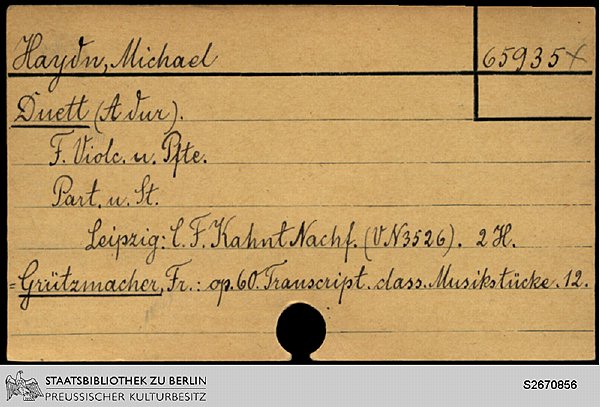 Haydn, Michael
65935
Duett (A dur).
F. Violc. u. Pfte.
Part. u. St.
Leipzig: C. F. Kahnt Nachf. (VN 3526). 2 H.
= Grützmacher, Fr.: op. 60. Transcript. class. Musikstücke. 12.
STAATSBIBLIOTHEK ZU BERLIN
PREUSSISCHER KULTURBESITZ
S2670856